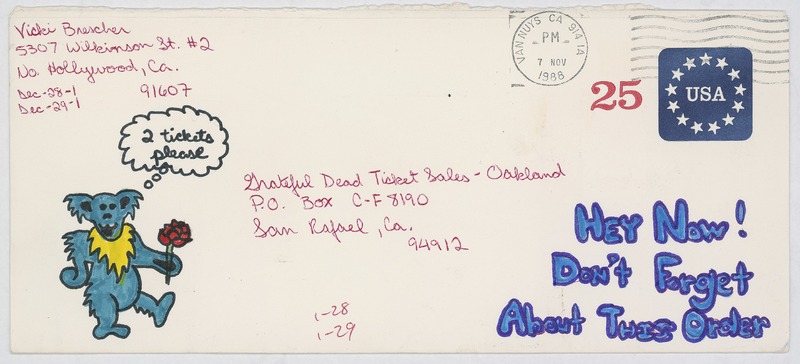 Vicki Brescher
5307 Wilkinson St. #2
No. Hollywood, Ca.
91607
Dec-28-1
Dec-29-1
VAN NUYS CA 914 1A
PM
7 NOV
1988
25
USA
2 tickets
please
Grateful Dead Ticket Sales - Oakland
P.O. Box C-F 8190
San Rafael, Ca.
94912
HEY NOW!
DON'T Forget
About THIS Order
1-28
1-29